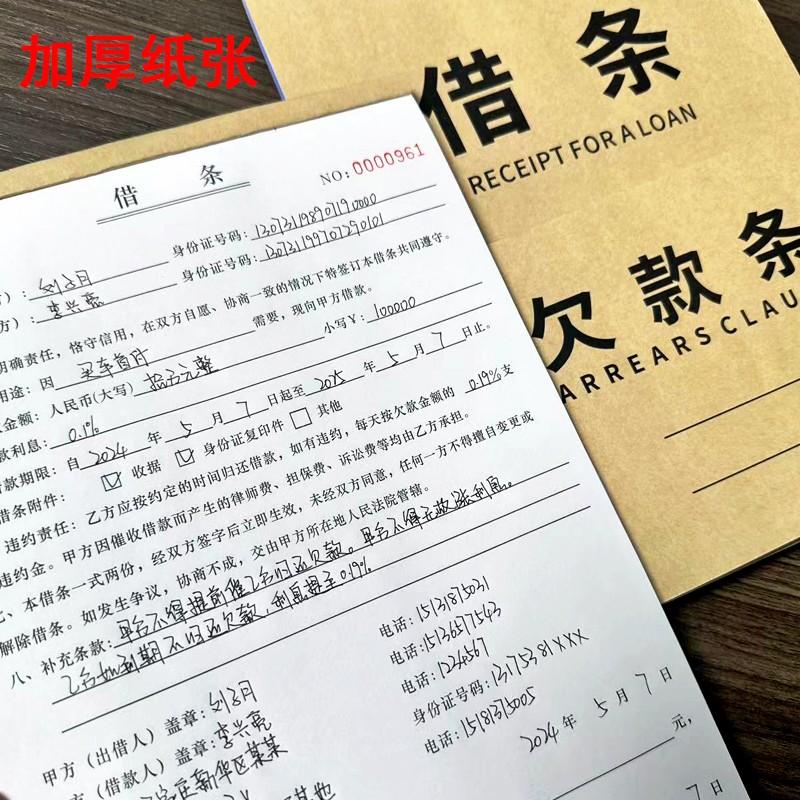 加厚纸张
借条
RECEIPT FOR A LOAN
欠款条
ARREARS CLAU
借条
NO：0000961
）：刘子月 身份证号码：
方）：李兴亮 身份证号码：
明确责任，恪守信用，在双方自愿、协商一致的情况下特签订本借条共同遵守。
用途：因 买车首付 需要，现向甲方借款。
金额：人民币(大写) 拾万元整 小写￥：100000
款利息：0.1%
款期限：自 2024 年 5 月 7 日起至 2025 年 5 月 7 日止。
借条附件： 收据 身份证复印件 其他
违约责任：乙方应按约定的时间归还借款，如有违约，每天按欠款金额的 0.19% 支
违约金。甲方因催收借款而产生的律师费、担保费、诉讼费等均由乙方承担。
七、本借条一式两份，经双方签字后立即生效，未经双方同意，任何一方不得擅自变更或
解除借条。如发生争议，协商不成，交由甲方所在地人民法院管辖。
八、补充条款：甲方不得提前催乙方归还欠款。甲方不得无故涨利息。
乙方如到期不归还欠款，利息提至0.19%
甲方（出借人）盖章：刘子月 电话：15131875031
方（借款人）盖章：李兴亮 电话：15136977543
庄新华区某某 电话：1234567
身份证号码：13175381XXX
电话：15181375005
2024 年 5 月 7 日
元，
7 日